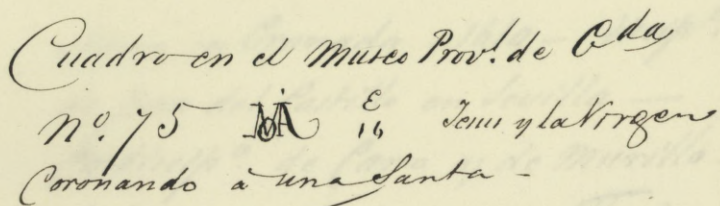 Cuadro en el Museo Prov.l de Gda
No. 75 E 16 Jesus y la Virgen
Coronando à una Santa -